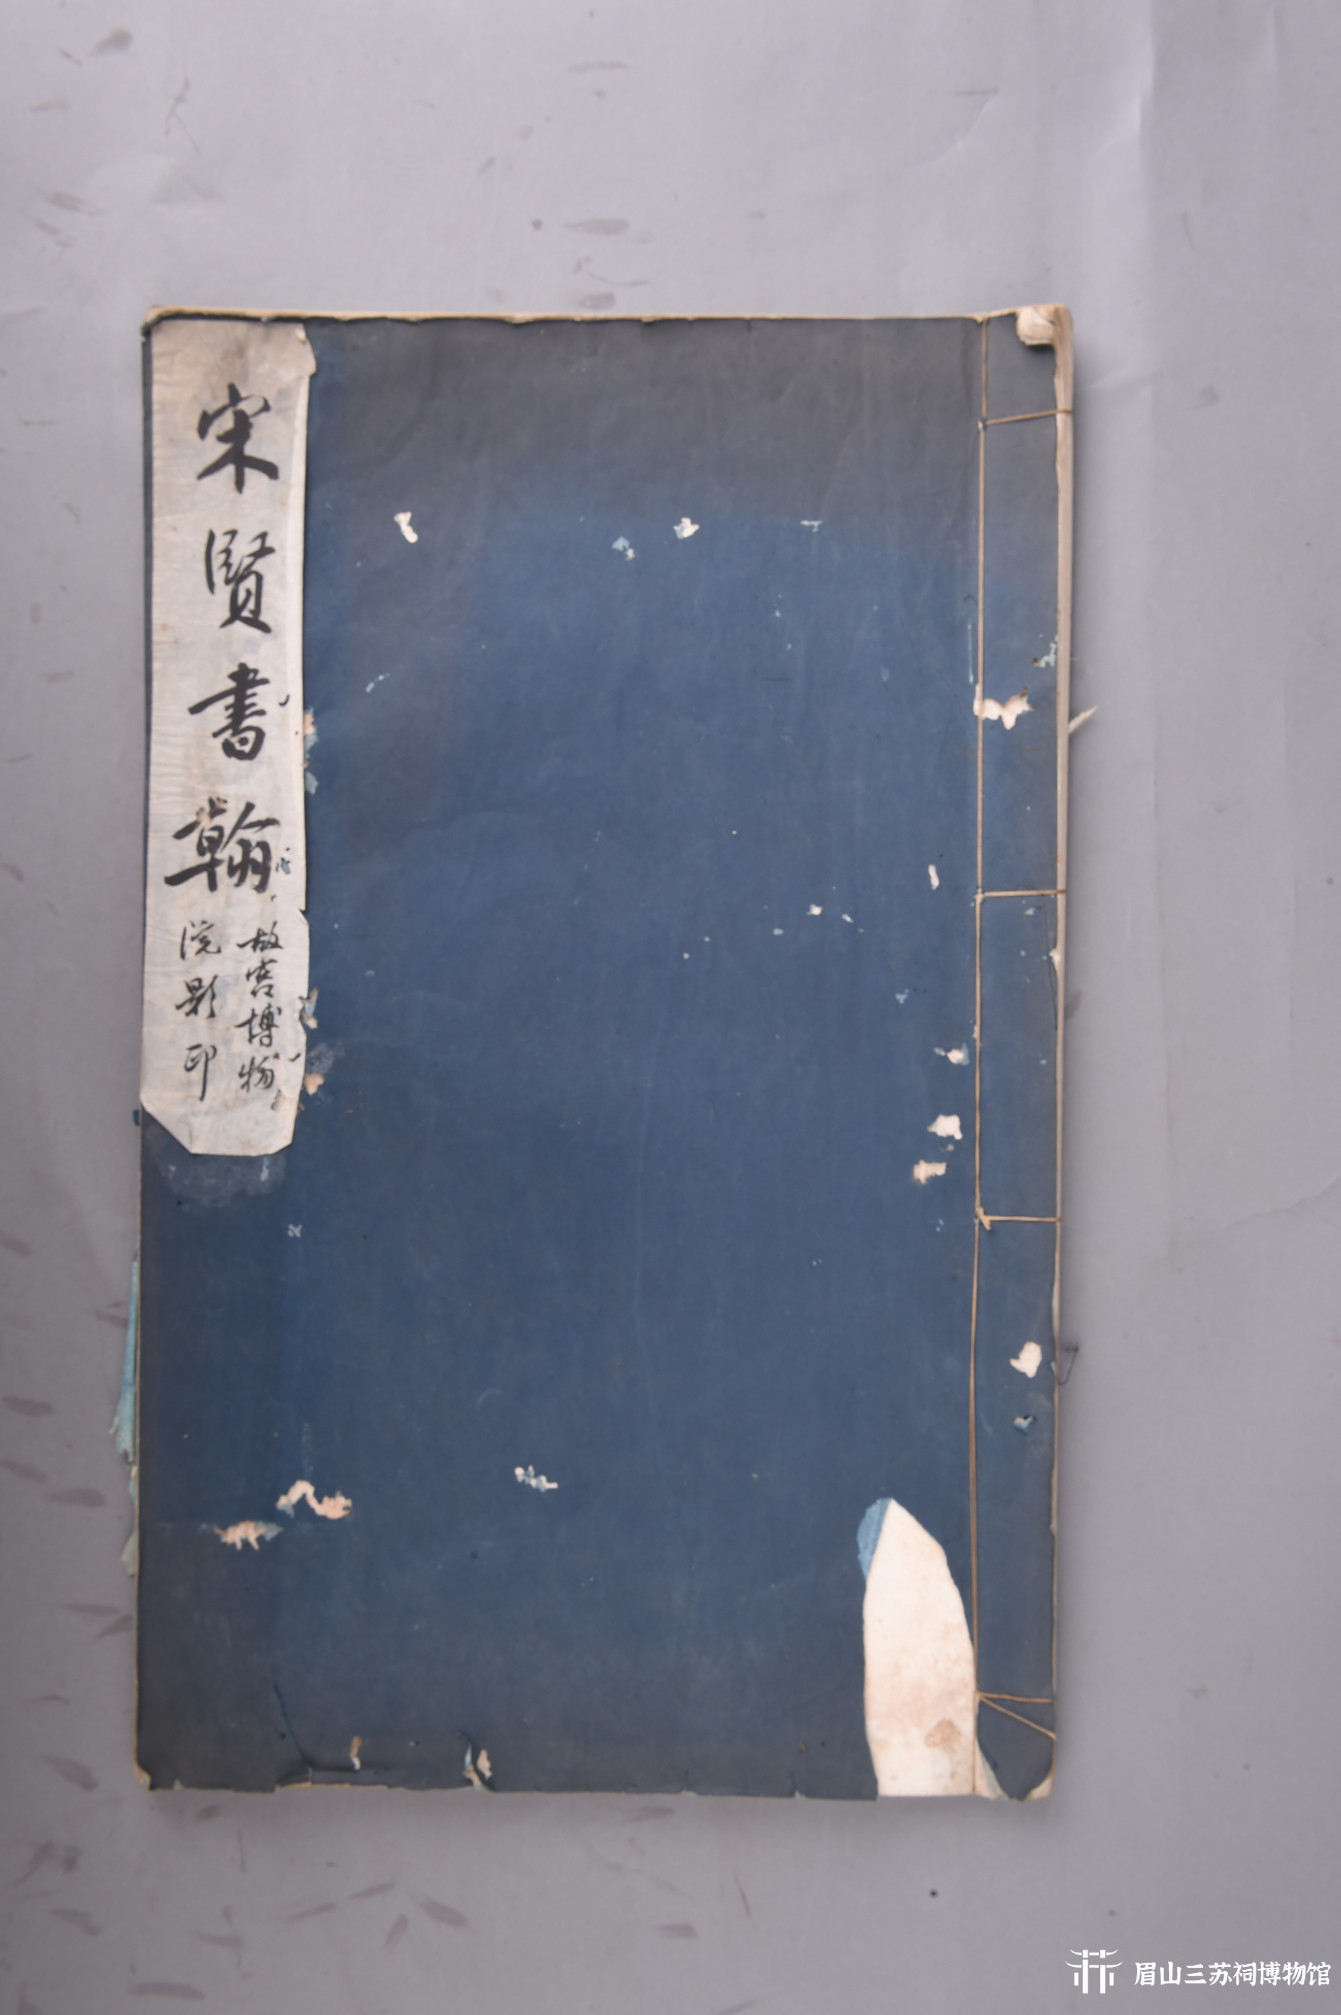 宋賢書翰
故宮博物
院影印
眉山三苏祠博物馆